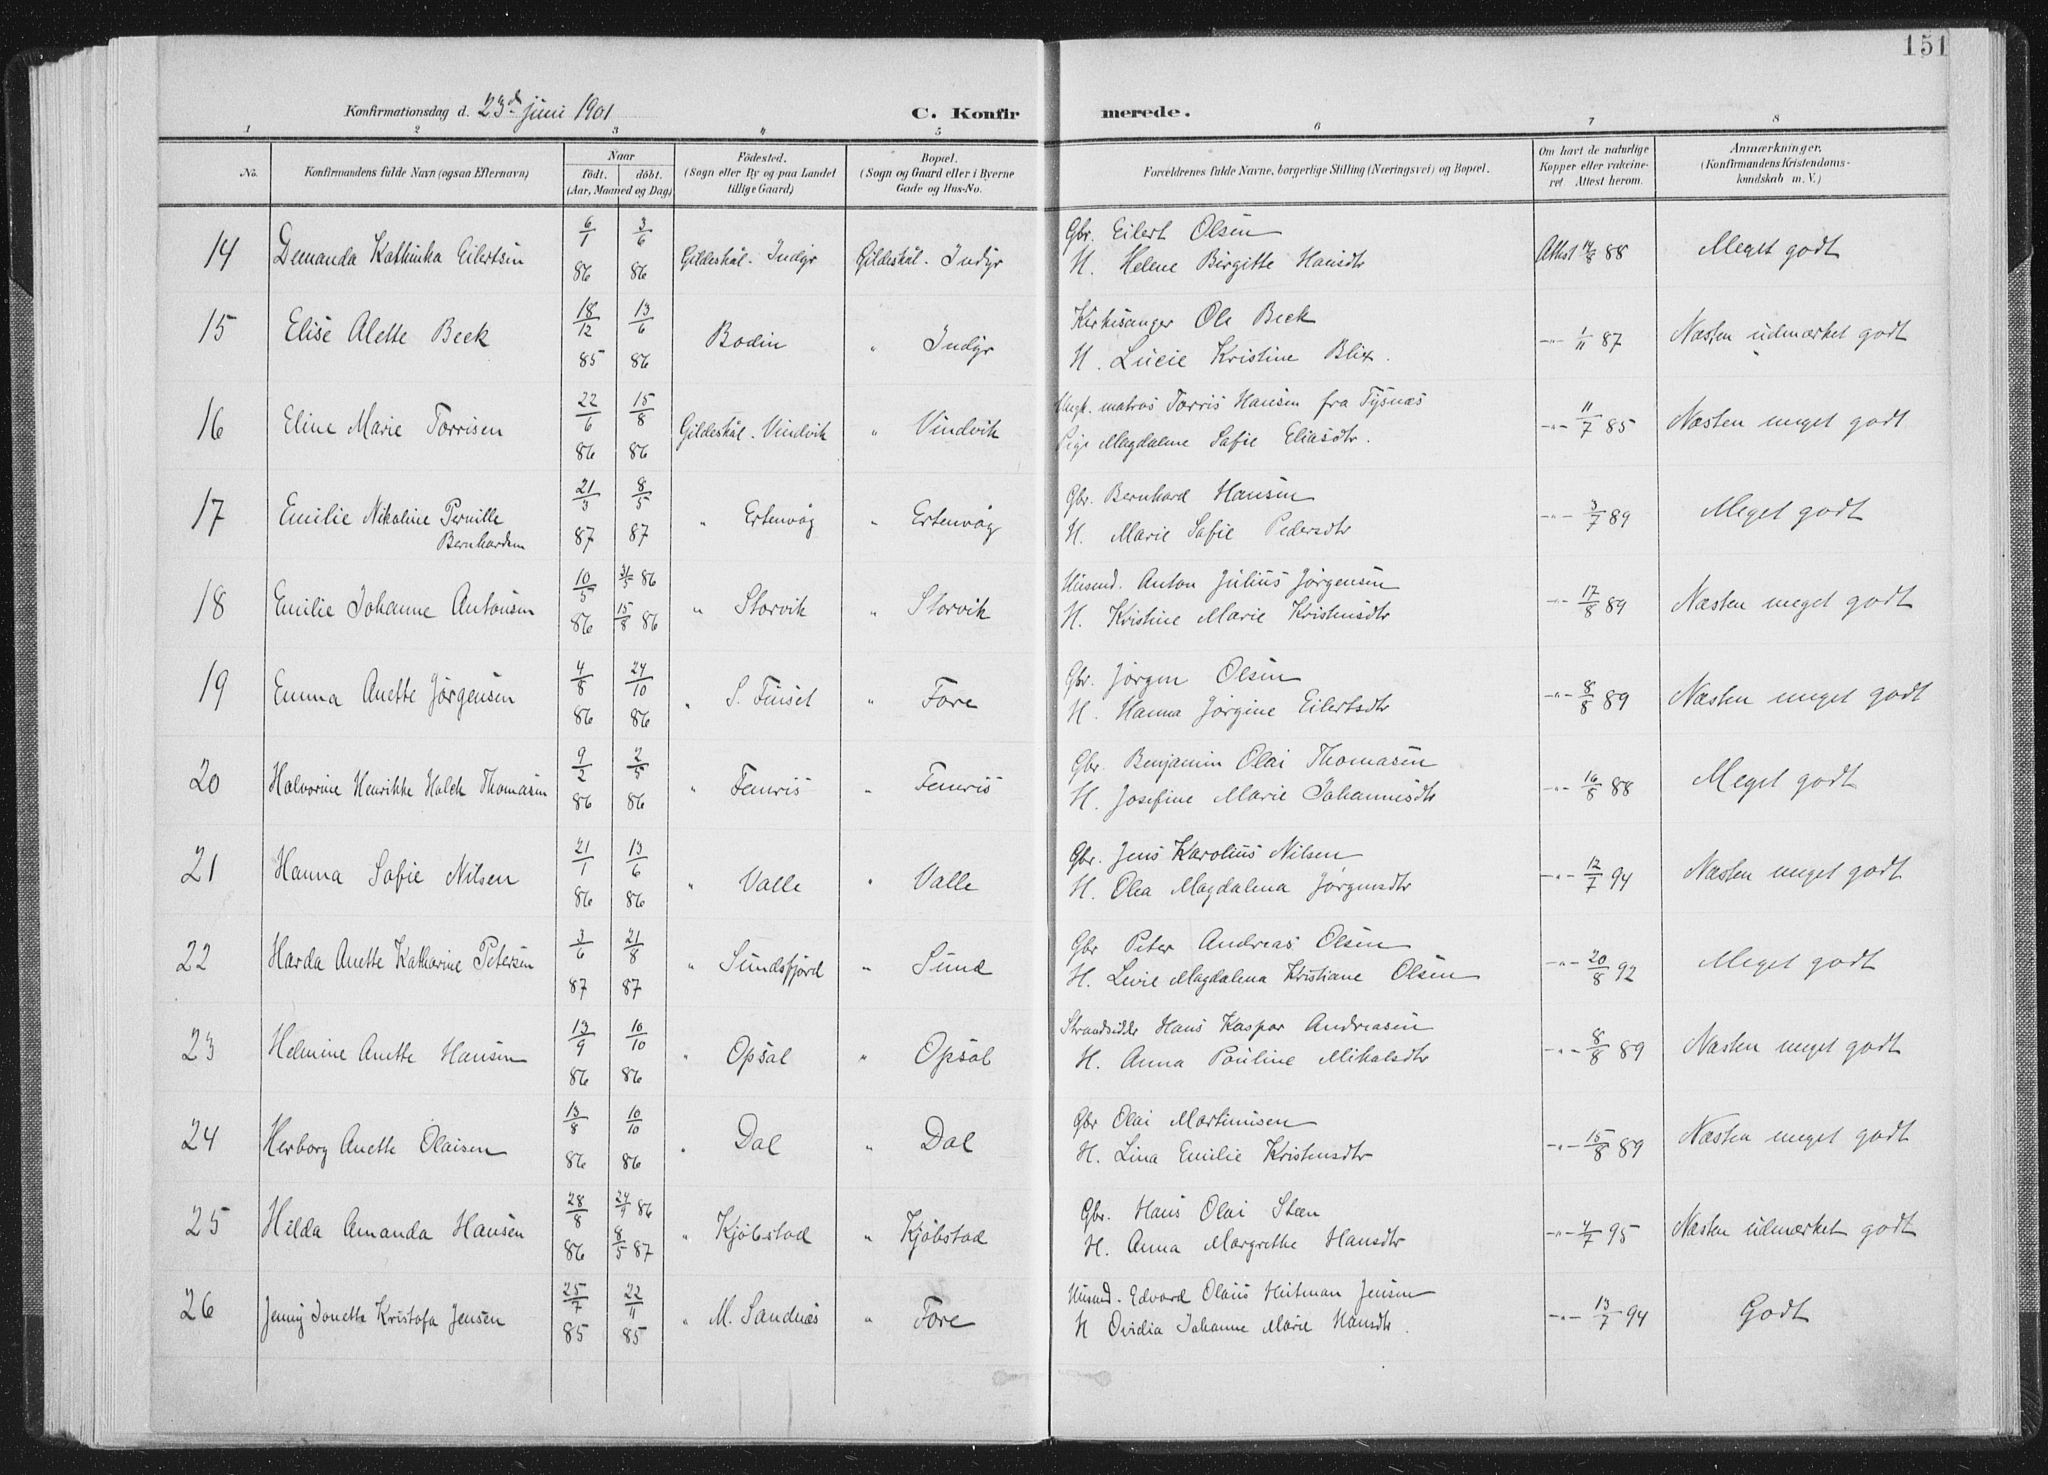 151
Konfirmationsdag d. 23d juni 1901 C. Konfirmerede.
1 2 3 4 5 6 7 8
No. Konfirmandens fulde Navn (ogsaa Efternavn) Naar født. døbt. (Aar, Maaned og Dag) Fødested. (Sogn eller By og paa Landet tillige Gaard) Bopæl. (Sogn og Gaard eller i Byerne Gade og Hus-No. Forældrenes fulde Navne, borgerlige Stilling (Næringsvei) og Bopæl. Om havt de naturlige Kopper eller vakcineret. Attest herom. Anmærkninger. (Konfirmandens Kristendomskundskab m. V.)
14 Demanda Kathinka Eilertsen 6/1 86 3/6 86 Gildeskål. Indyr Gildeskål. Indyr Gbr. Eilert Olsen Attest 14/8 88 Meget godt
H. Helene Birgitte Hansdtr
15 Elise Alette Beck 18/12 85 13/6 86 Bodin " Indyr Kirkesanger Ole Beck -"- 1/11 87 Næsten udmærket godt
H. Lucie Kristine Blix.
16 Eline Marie Torrisen 22/6 86 15/8 86 Gildeskål. Vindvik " Vindvik Ungk. matros Torris Hansen fra Tysnæs -"- 11/7 85 Næsten meget godt
Pige Magdalene Safie Eliasdtr.
17 Emilie Nikoline Pernille Bernhardsen 21/3 87 8/5 87 " Ertenvåg " Ertenvåg Gbr. Bernhard Hansen -"- 3/7 89 Meget godt
H. Marie Safie Pedersdtr
18 Emilie Johanne Antonsen 10/5 86 31/5 86 15/8 86 " Storvik " Storvik Husmd. Anton Julius Jørgensen -"- 17/8 89 Næsten meget godt
H. Kristine Marie Kristensdtr
19 Emma Anette Jørgensen 4/8 86 24/10 86 " S. Finset " Fore Gbr. Jørgen Olsen -"- 8/8 89 Næsten meget godt
H. Hanna Jørgine Eilertsdtr
20 Halvorine Henrikke Holck Thomasen 9/2 86 2/5 86 " Femris " Femris Gbr. Benjamin Olai Thomasen -"- 16/8 88 Meget godt
H. Josefine Marie Johannesdtr
21 Hanna Safie Nilsen 21/1 86 13/6 86 " Valle " Valle Gbr. Jens Karolius Nilsen -"- 12/7 94 Næsten meget godt
H. Olea Magdalena Jørgensdtr
22 Harda Anette Katharine Petersen 3/6 87 21/8 87 " Sundsfjord " Sund Gbr Peter Andreas Olsen -"- 20/8 92 Meget godt
H. Levie Magdalena Kristiane Olsen
23 Helmine Anette Hansen 13/9 86 10/10 86 " Opsal " Opsal Strandsidder Hans Kaspar Andreasen -"- 8/8 89 Næsten meget godt
H. Anna Pauline Mikalsdtr
24 Herborg Anette Olaisen 13/8 86 10/10 86 " Dal " Dal Gbr Olai Martinusen -"- 15/8 89 Næsten meget godt
H. Lina Emilie Kristensdtr
25 Hilda Amanda Hansen 28/8 86 86 8/5 87 " Kjøbstad " Kjøbstad Gbr. Hans Olai Steen -"- 4/7 95 Næsten udmærket godt
H. Anna Margrethe Hansdtr
26 Jenny Jonette Kristofa Jensen 25/7 85 22/11 85 " M. Sandnæs " Fore Husmd. Edvard Olaus Heitman Jensen -"- 13/7 94 Godt
H Ovidia Johanne Marie Hansdtr.